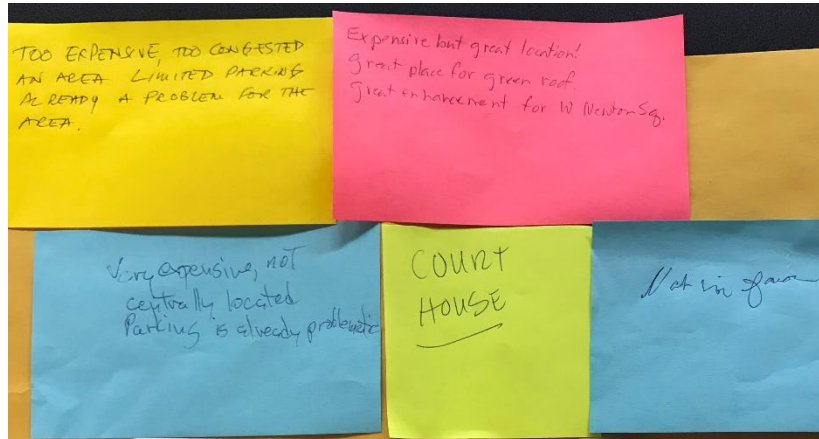 TOO EXPENSIVE, TOO CONGESTED
AN AREA LIMITED PARKING
ALREADY A PROBLEM FOR THE
AREA.
Expensive but great location!
great place for green roof.
Great enhancement for W Newton Sq.
Very expensive, not
centrally located
Parking is already problematic
COURT
HOUSE
Not in favor